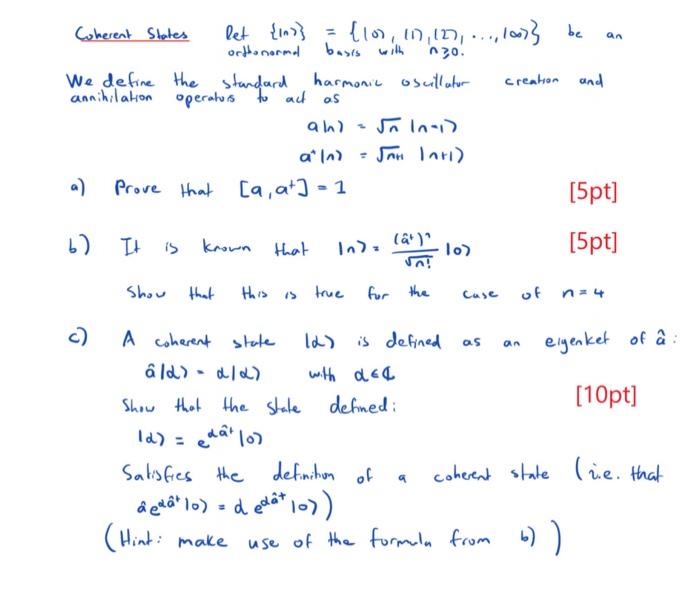 Coherent States Let {|n⟩} = {|0⟩, |1⟩, |2⟩, ..., |∞⟩} be an
orthonormal basis with n≥0.
We define the standard harmonic oscillator creation and
annihilation operators to act as
a|n⟩ = √n |n-1⟩
a⁺|n⟩ = √n+1 |n+1⟩
a) Prove that [a, a⁺] = 1 [5pt]
b) It is known that |n⟩ = (â⁺)ⁿ/√n! |0⟩ [5pt]
Show that this is true for the case of n = 4
c) A coherent state |α⟩ is defined as an eigenket of â:
â|α⟩ = α|α⟩ with α∈ℂ
Show that the state defined: [10pt]
|α⟩ = e^αâ⁺ |0⟩
Satisfies the definition of a coherent state (i.e. that
âe^αâ⁺|0⟩ = α e^αâ⁺ |0⟩)
(Hint: make use of the formula from b))